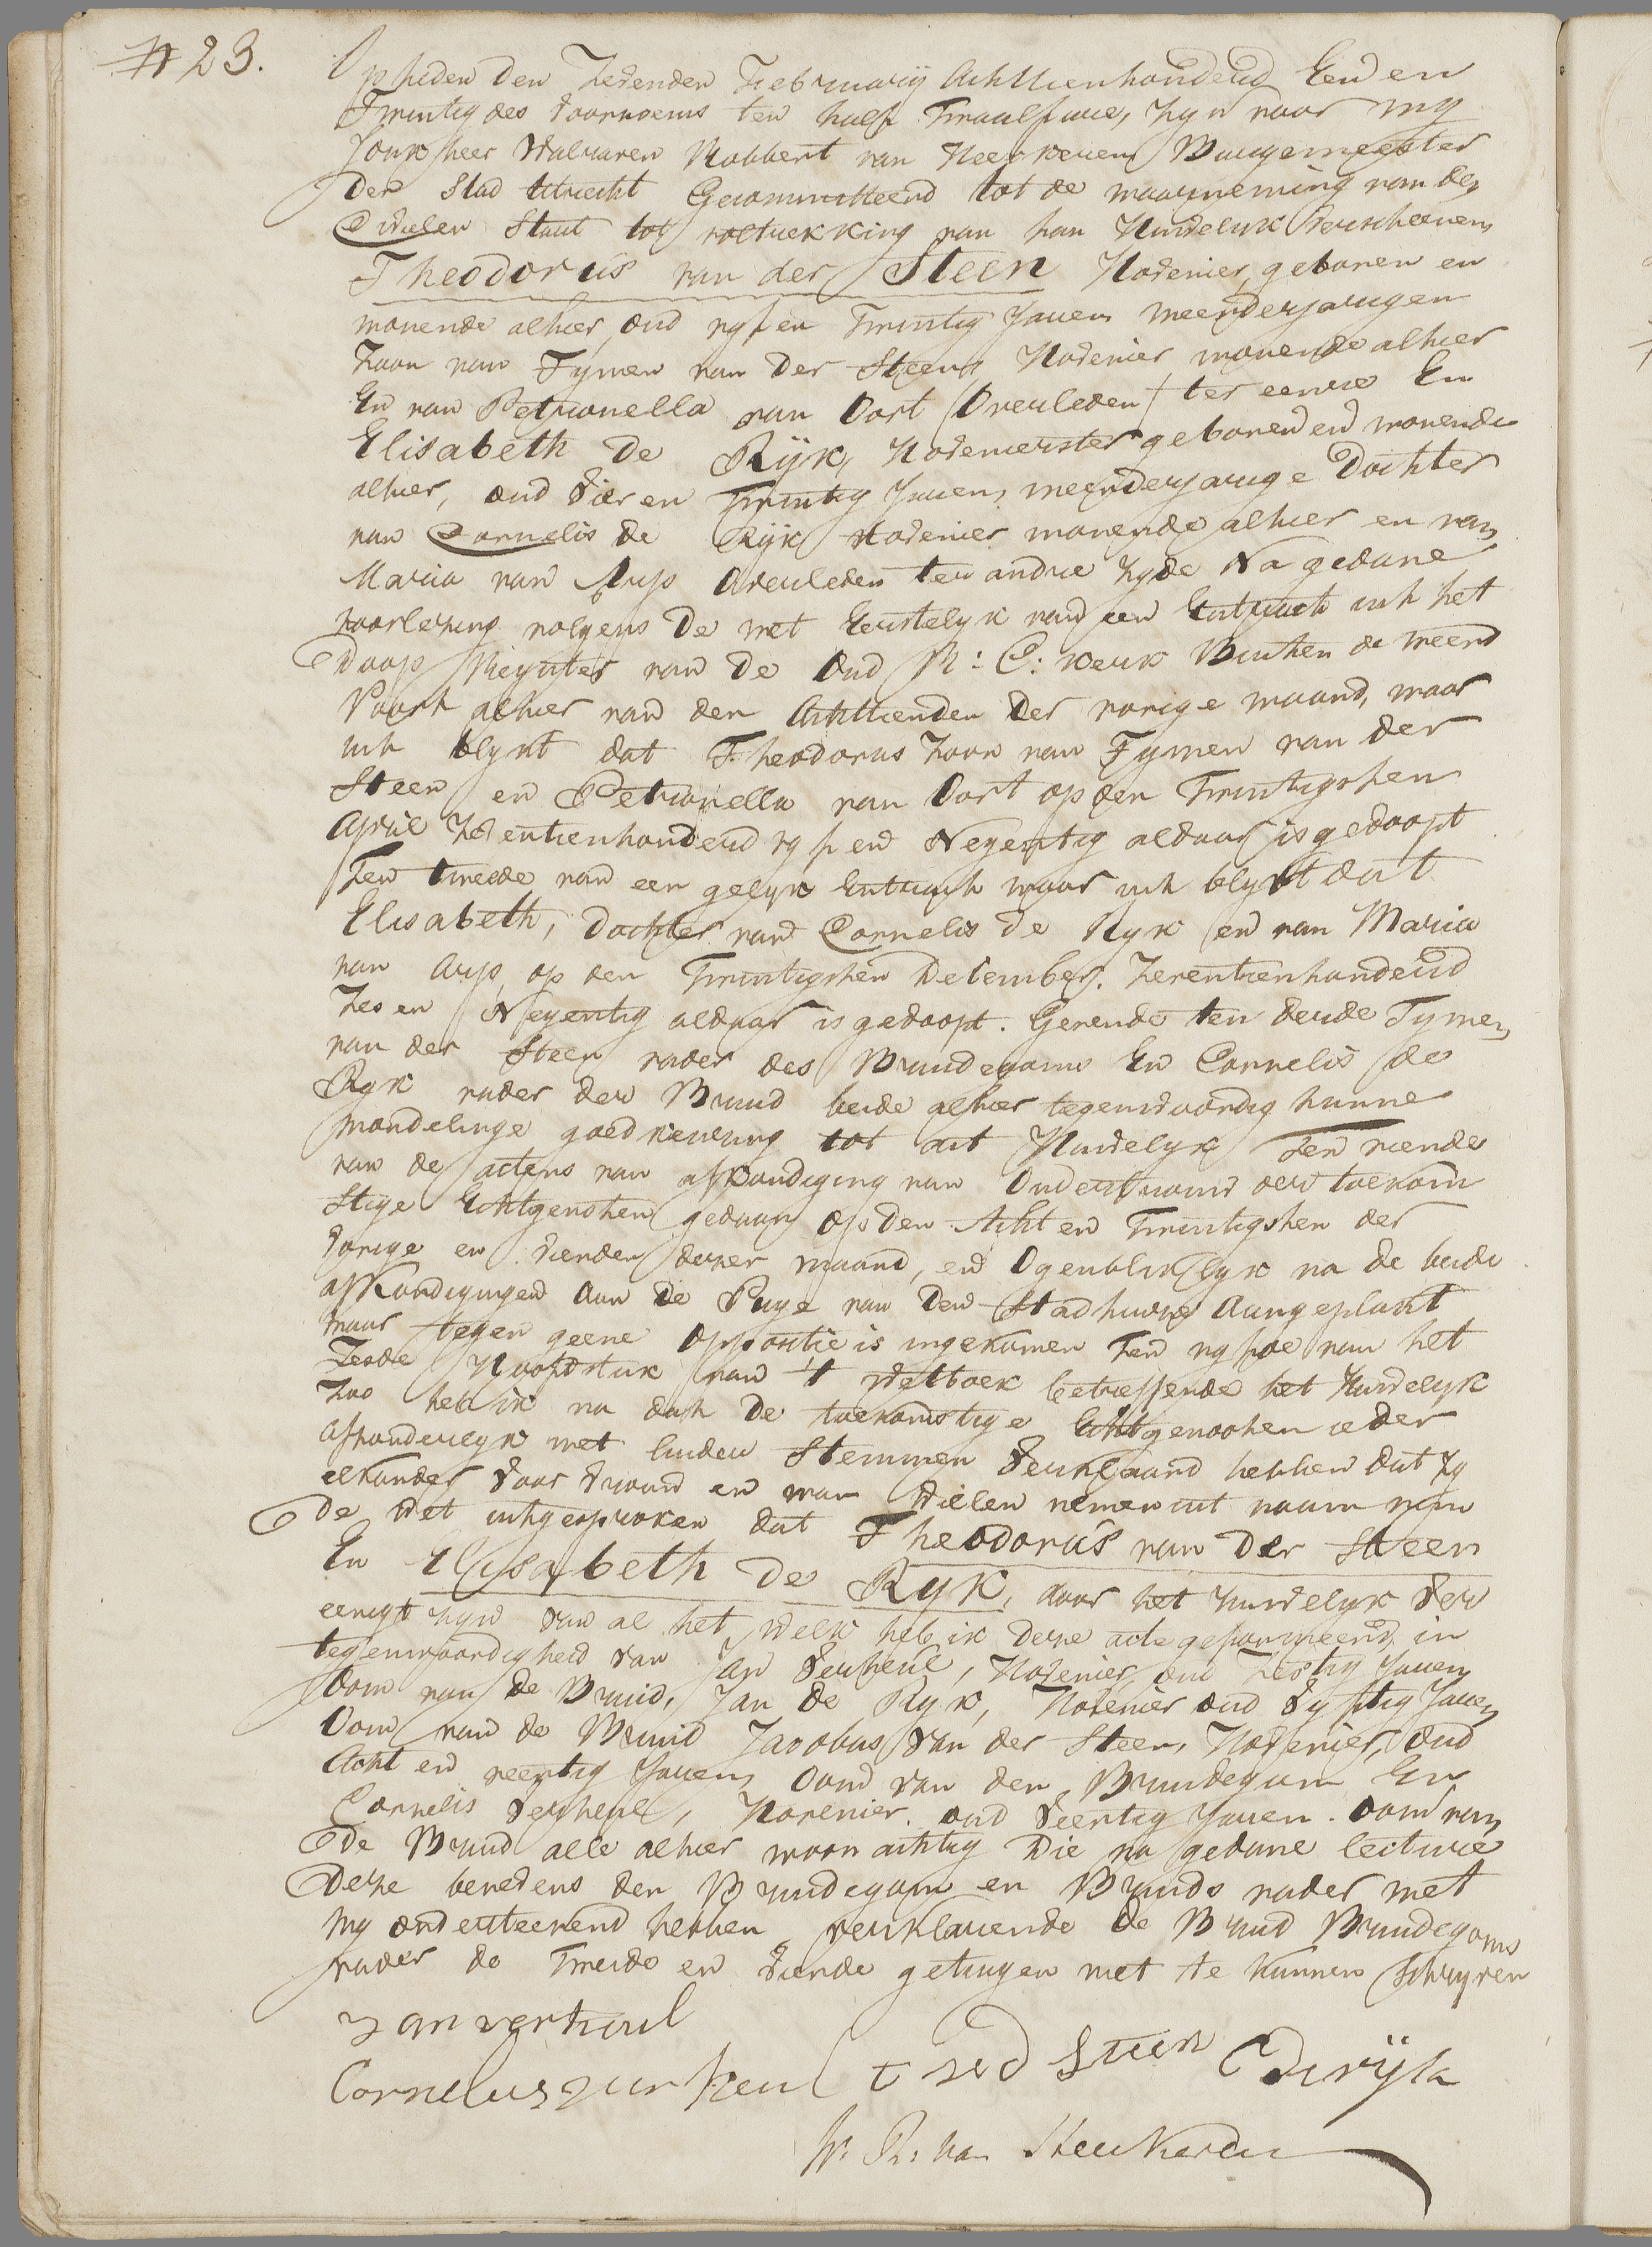 # 23.
Op heden den Zevenden Februarij Achttienhonderd Een en
Twintig des voornoens ten half Twaalf ure, Zyn voor my
Jonkheer Walraven Robbert van Heeckeren Burgemeester
der Stad Utrecht Gecommitteerd tot de waarneming van den
Civielen Staat tot voltrekking van hun Huwelyk Verscheenen
Theodorus van der Steen Hovenier, geboren en
wonende alhier, oud vyf en Twintig Jaren meerderjarigen
Zoon van Tymen van der Steen, Hovenier wonende alhier
En van Petronella van Oort (Overleden) ter eenre En
Elisabeth De Rÿk, Hovenierster geboren en wonende
alhier, oud vier en Twintig Jaren, meerderjarige Dochter
van Cornelis de Rÿk Hovenier wonende alhier en van
Maria van Arp Overleden ter andre Zyde Na gedane
voorlezing volgens De wet Eerstelyk van een Extract uit het
Doop Register van de Oud R: C: kerk Buiten de Weerd
Poort alhier van den Achttienden der vorige maand, waar
uit blykt dat Theodorus Zoon van Tymen van der
Steen en Petronella van Oort op den Twintigsten
April Zeventienhonderd vyf en Negentig aldaar is gedoopt
Ten tweede van een gelyk Extract waar uit blykt dat
Elisabeth, Dochter van Cornelis de Ryk en van Maria
van Arp op den Twintigsten December Zeventienhonderd
Zes en Negentig aldaar is gedoopt. Gevende ten derde Tymen
van der Steen vader des Bruidegoms En Cornelis de
Ryk vader der Bruid beide alhier tegenwoordig hunne
mondelinge goedkeuring tot dit Huwelyk Ten vierde
van de actens van afkondiging van Ondertrouw der toekom
stige Echtgenoten gedaan op den Acht en Twintigsten der
vorige en vierden dezer maand, en Ogenbliklyk na de beide
afkondigingen aan de Puye van den Stadhuize Aangeplakt
waar tegen geene Oppositie is ingekomen Ten vyfde van het
Zesde Hoofdstuk van 't Wetboek betreffende het Huwelyk
Zoo heb ik na dat De toekomstige Echtgenooten ieder
afzonderlyk met luider Stemmen verklaard hebben dat zy
elkander voor vrouw en man Wielen nemen uit naam van
de Wet uitgesproken dat Theodorus van Der Steen
En Elisabeth De Ryk, door het Huwelyk ver
eenigt zyn van al het welk heb ik deze acte geformeerd in
tegenwoordigheid van Jan Verheul, Hovenier, oud Zestig Jaren
Oom van de Bruid, Jan de Ryk, Hovenier oud Vyftig Jaren
Oom van de Bruid Jacobus van der Steen, Hovenier, oud
Acht en veertig Jaren, Oom van den Bruidegom En
Cornelis Verheul, Hovenier. oud Veertig Jaren. Oom van
de Bruid alle alhier woonachtig Die na gedane lecture
Deze benevens den Bruidegom en Bruids vader met
my onderteekend hebben verklarende de Bruid Bruidegoms
vader de Tweede en Vierde getuigen niet te kunnen schryven
Jan verheul
Cornelus verheul t v d Steen C de rÿk
W. R. van Heeckeren